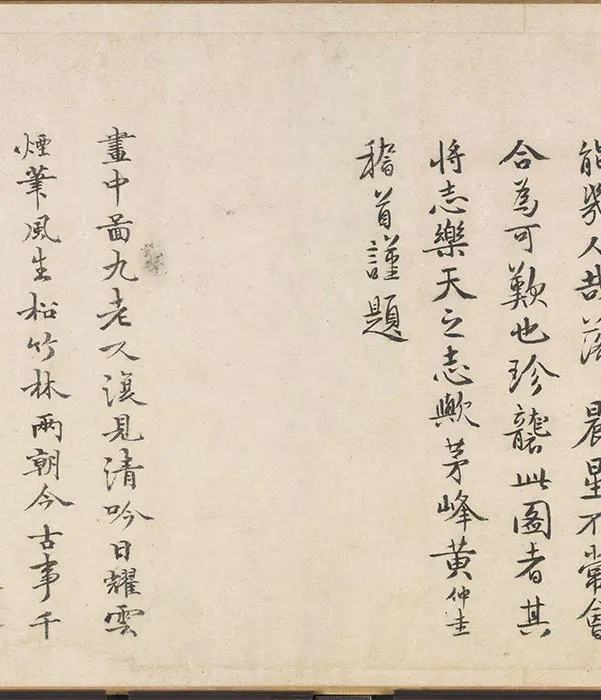 能幾人哉落晨星不常會
合為可歎也珍襲此圖者其
將志樂天之志歟茅峰黃仲圭
稽首謹題
畫中啚九老又復見清吟日耀雲
煙筆風生松竹林兩朝今古事千